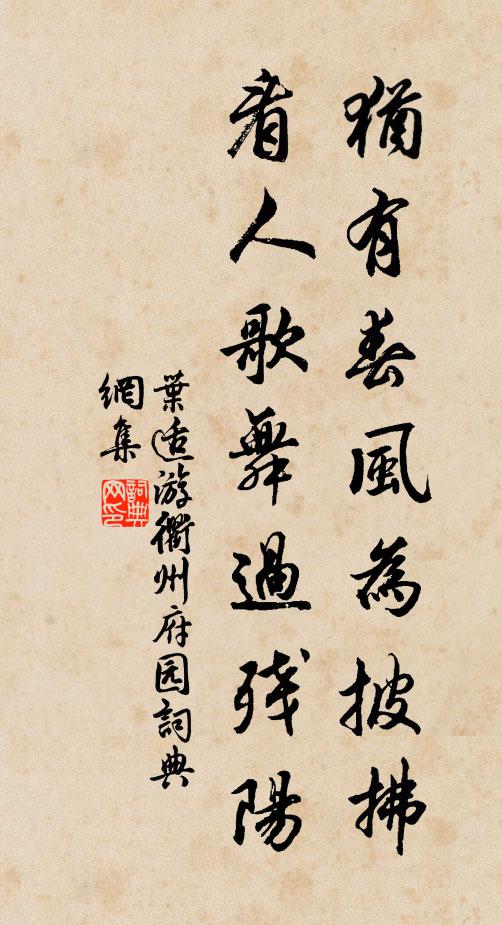 猶有春風為披拂
看人歌舞過殘陽
葉适游衢州府园詞典
網集
詞典
网印